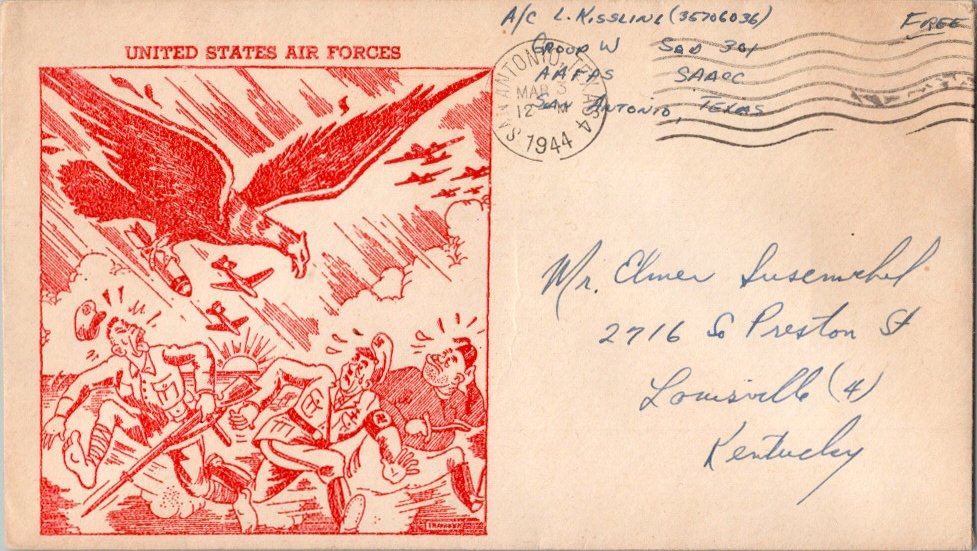 A/C L. KISSLING (35706036)
FREE
GROUP W SQD 301
AAFPS SAACC
SAN ANTONIO, TEXAS
SAN ANTONIO, TEXAS
MAR 3
12 M
1944
UNITED STATES AIR FORCES
Mr. Elmer Susemichel
2716 So Preston St
Louisville (4)
Kentucky